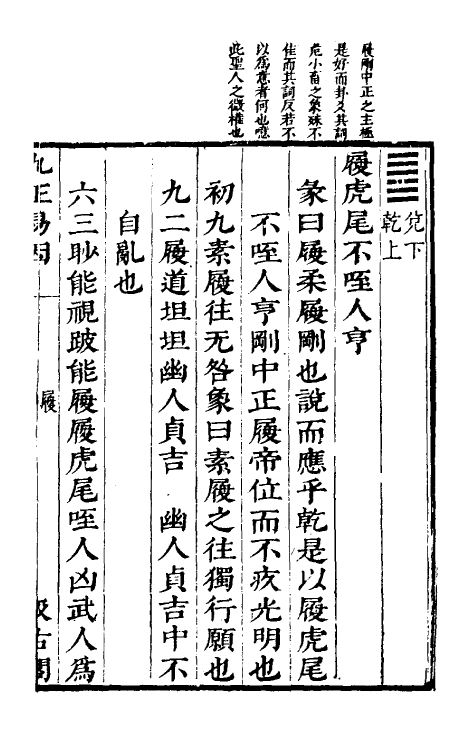 履剛中正之主極
是好而卦爻其詞
危小畜之象殊不
佳而其詞反若不
以為意者何也噫
此聖人之微權也
兌下
乾上
履虎尾不咥人亨
彖曰履柔履剛也說而應乎乾是以履虎尾
不咥人亨剛中正履帝位而不疚光明也
初九素履往无咎象曰素履之往獨行願也
九二履道坦坦幽人貞吉 幽人貞吉中不
自亂也
六三眇能視跛能履履虎尾咥人凶武人為
九正易因
履
汲古閣